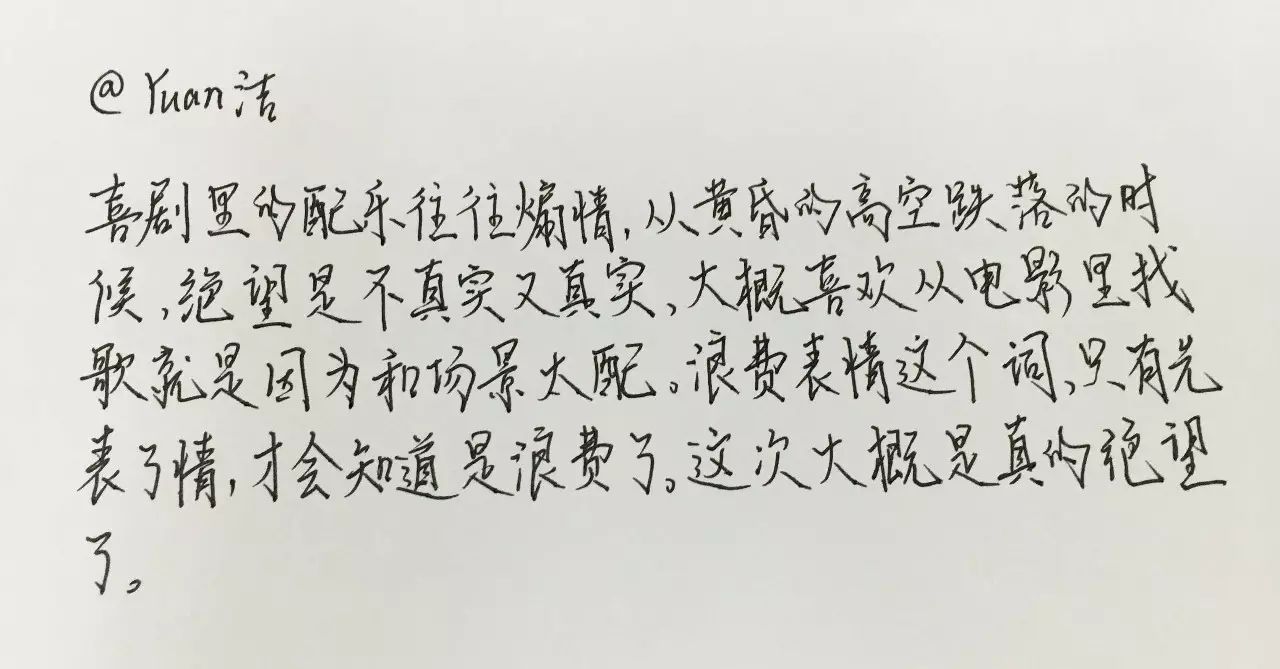 @Yuan洁
喜剧里的配乐往往煽情,从黄昏的高空跌落的时
候,绝望是不真实又真实,大概喜欢从电影里找
歌就是因为和场景太配。浪费表情这个词,只有先
表了情,才会知道是浪费了。这次大概是真的绝望
了。